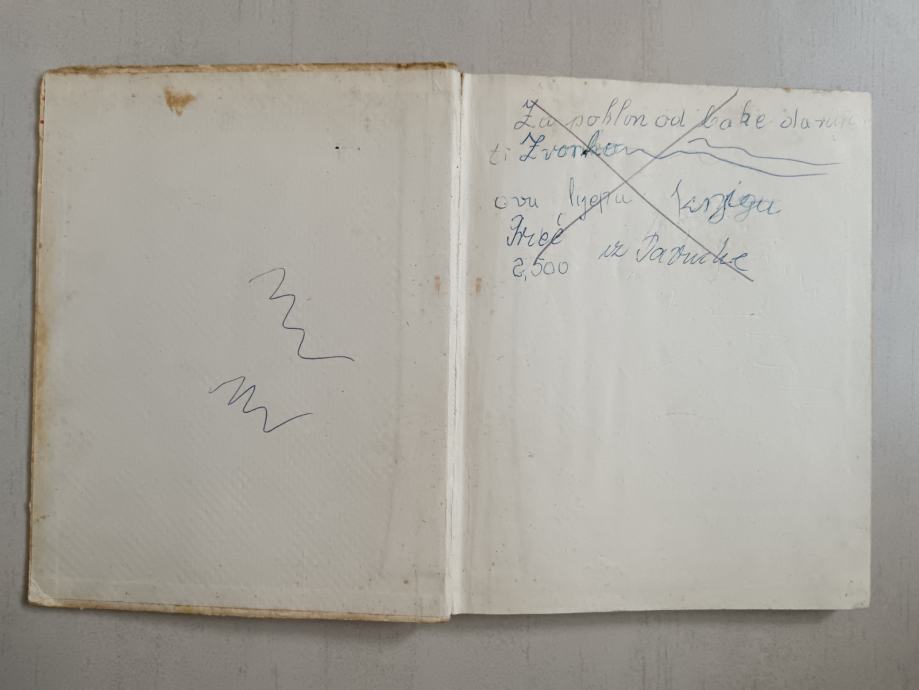 Za poklon od bake
ti Zvonko
ovu lijepu knjigu
iz
2,500